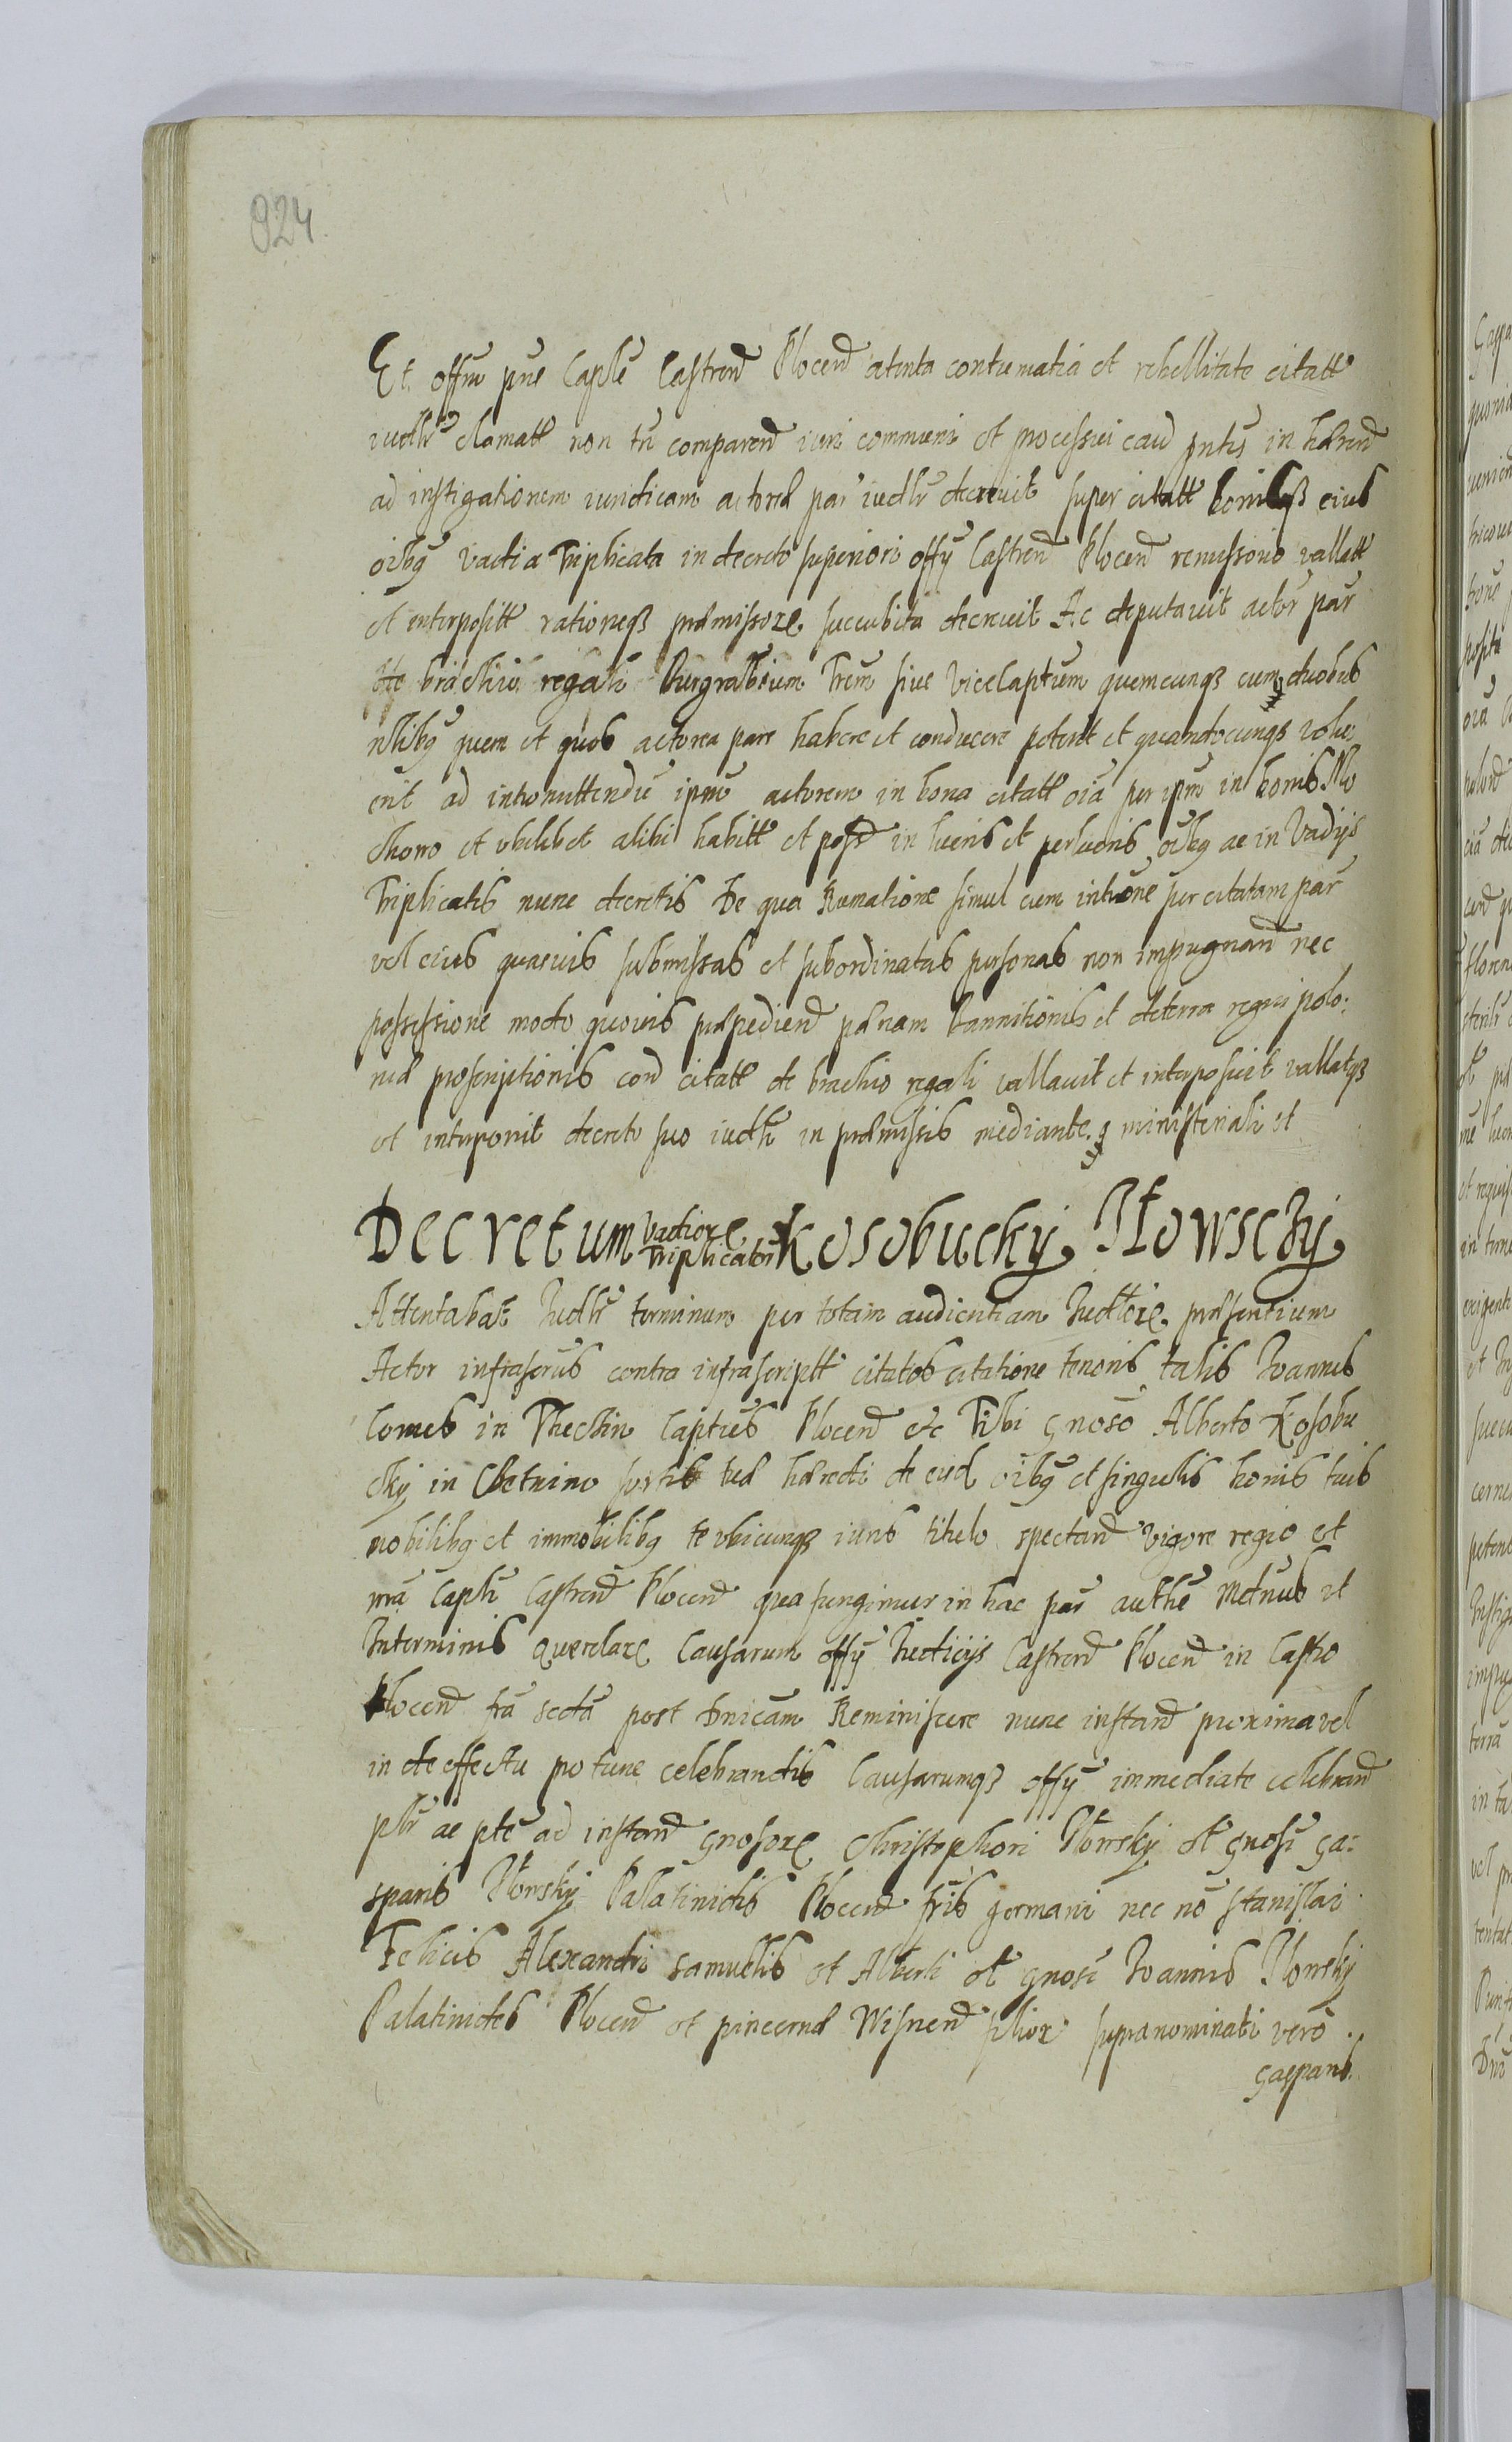 924.
Et offm pns Caple Castren Plocen atenta contumatia et rebellitate citatt
iudlr clamatt non tn comparen iuri communi et processui cau pntis in hæren
ad instigationem iuridicam actoreæ par iudlr decrevit super citatt bonisqз eius
oibg vadia Triplicata in decreto superiori offÿ Castren Plocen remissorio vallatt
et interpositt rationeqз præmissorz succubita decrevit Ac deputavit actor par
de brachio regali Burgrabium Trem siue ViceCaptum quemcunqз cum duobus
nlibg quem et quos actorea pars habere et conducere poterit et quandocunqз volu
erit ad intromittendu ipsu actorem in bona citatt oia per ipsm in bonis Mo
chowo et vbilibet alibi habitt et poss in lucris et perlucris oibg ac in Vadijs
Triplicatis nunc decretis De qua Rumatione simul cum intrōne per citatam par
vel eius quasuis submissas et subordinatas personas non impugnan nec
possessione modo quouis præpedien pænam bannitionis et de terra regni polo:
niæ proscriptionis con citatt de brachio regali vallauit et interposuit vallatqз
et interponit decreto suo iudli in præmissis mediante ministeriali et
Decretum Vadiorz Triplicator Kosobucky Iłowsczÿ
Attentabat Iudlr terminum per totam audientiam Iudlciorz præsentium
Actor infrascrus contra infrascriptt citatos citatione tenoris talis Ioannes
Comes in Thechin Captus Plocen etc Tibi Gnoso Alberto Kosobu
cky in Cetnino sortis tuæ hæredi de eiusd oibg et singulis bonis tuis
mobilibg et immobilibg te vbicunqз iuris titulo spectan vigore regio et
nra Capli Castren Plocen qua fungimur in hac par authe Metnus vt
Interminis querelarz Causarum offÿ Iudicijs Castren Plocen in Castro
Plocen fra secta post Dnicam Reminiscere nunc instan proxima vel
in deeffectu pro tunc celebrandis Causarumqз offÿ immediate celebran
plr ac pte ad instan Gnosorz Christophori Iłowsky et Gnosi Ga:
sparis Iłowsky Palatinidis Plocen fris germani nec nō Stanislai
Felicis Alexandri Samuelis et Alberti et gnosi Ioannis Iłowsky
Palatinides Plocen et pincernæ Wisnen filior supranominati vero
Gasparis.